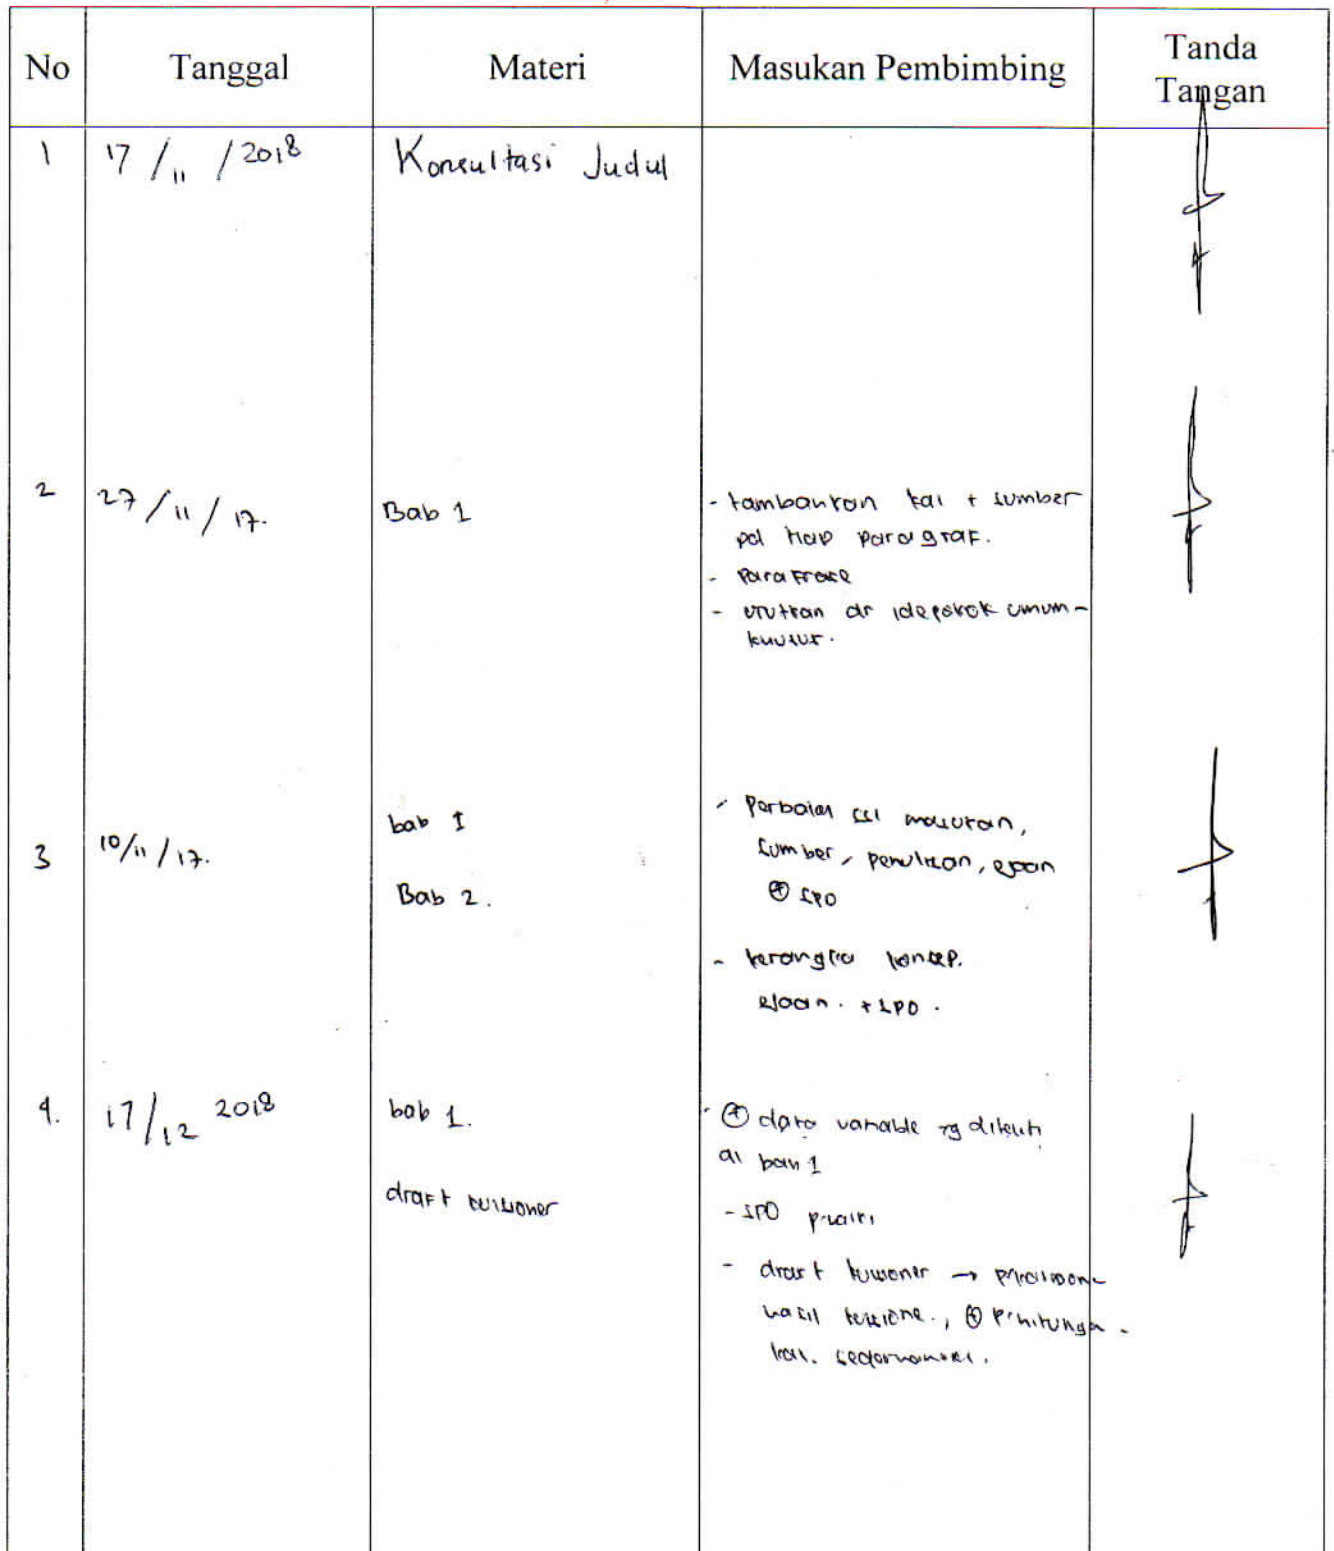 No Tanggal Materi Masukan Pembimbing Tanda
Tangan
1 17/11/2018 Konsultasi Judul
2 27/11/17. Bab 1 - tambahkan kal + sumber
pd tiap paragraf.
- Parafrase
- urutkan dr idepokok umum-
khusus.
3 10/11/17. bab 1 - Perbaiki ssi masukan,
sumber, penulisan, ejaan
Bab 2. ⊕ SPO
- kerangka konsep.
ejaan. + SPO.
4. 17/12 2018 bab 1. - ⊕ data variable yg dikuti
di bab 1
draft kuisioner - SPO
- draft kuisioner →
hasil ⊕
sederhana